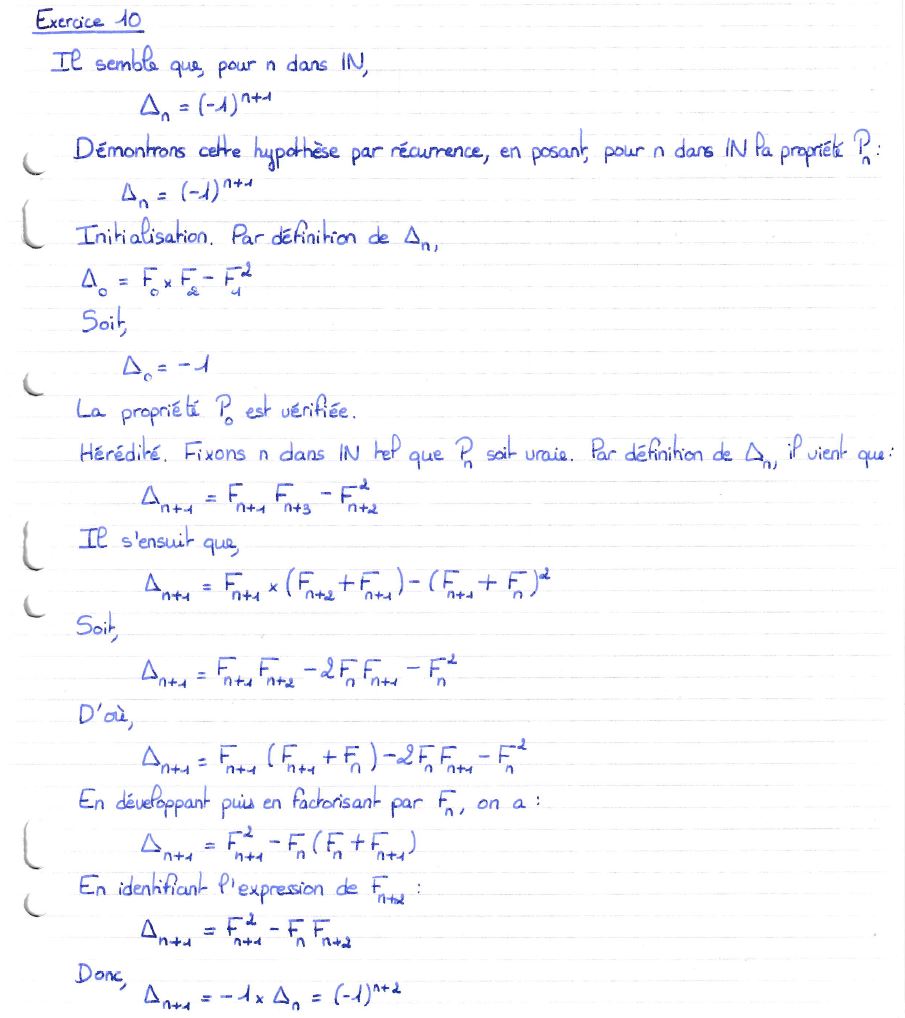 Exercice 10
Il semble que, pour n dans ℕ,
Δₙ = (-1)ⁿ⁺¹
Démontrons cette hypothèse par récurrence, en posant, pour n dans ℕ la propriété Pₙ :
Δₙ = (-1)ⁿ⁺¹
Initialisation. Par définition de Δₙ,
Δ₀ = F₀ × F₂ - F₁²
Soit,
Δ₀ = -1
La propriété P₀ est vérifiée.
Hérédité. Fixons n dans ℕ tel que Pₙ soit vraie. Par définition de Δₙ, il vient que :
Δₙ₊₁ = Fₙ₊₁ Fₙ₊₃ - Fₙ₊₂²
Il s'ensuit que,
Δₙ₊₁ = Fₙ₊₁ × (Fₙ₊₂ + Fₙ₊₁) - (Fₙ₊₁ + Fₙ)²
Soit,
Δₙ₊₁ = Fₙ₊₁ Fₙ₊₂ - 2Fₙ Fₙ₊₁ - Fₙ²
D'où,
Δₙ₊₁ = Fₙ₊₁ (Fₙ₊₁ + Fₙ) - 2Fₙ Fₙ₊₁ - Fₙ²
En développant puis en factorisant par Fₙ, on a :
Δₙ₊₁ = Fₙ₊₁² - Fₙ (Fₙ + Fₙ₊₁)
En identifiant l'expression de Fₙ₊₂ :
Δₙ₊₁ = Fₙ₊₁² - Fₙ Fₙ₊₂
Donc,
Δₙ₊₁ = -1 × Δₙ = (-1)ⁿ⁺²